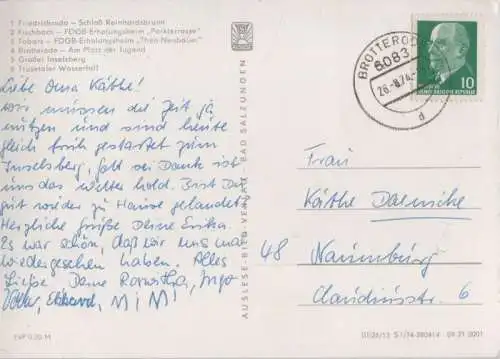 1 Friedrichroda – Schloß Reinhardsbrunn
2 Fischbach – FDGB-Erholungsheim „Parkterrasse"
3 Tabarz – FDGB-Erholungsheim „Theo Neubauer"
4 Brotterode – Am Platz der Jugend
5 Großer Inselsberg
6 Trusetaler Wasserfall
Liebe Oma Käthe!
Wir müssen die Zeit ja
nützen und sind heute
gleich früh gestartet zum
Inselsberg, Gott sei Dank ist
uns das Wetter hold. Bist Du
gut wieder zu Hause gelandet?
Herzliche Grüße Deine Erika.
Es war schön, daß wir uns mal
wiedergesehen haben. Alles
Liebe Deine Roswitha, Ingo
Volker, Ekkard, MiMi
EVP 0,20 M
AUSLESE-BILD-VERLAG · BAD SALZUNGEN
BROTTERODE
6083
26.-8.74
d
10
DEUTSCHE DEMOKRATISCHE REPUBLIK
Frau
Käthe
48 Naumburg
Claudiusstr. 6
S 1/74
09 21 0001